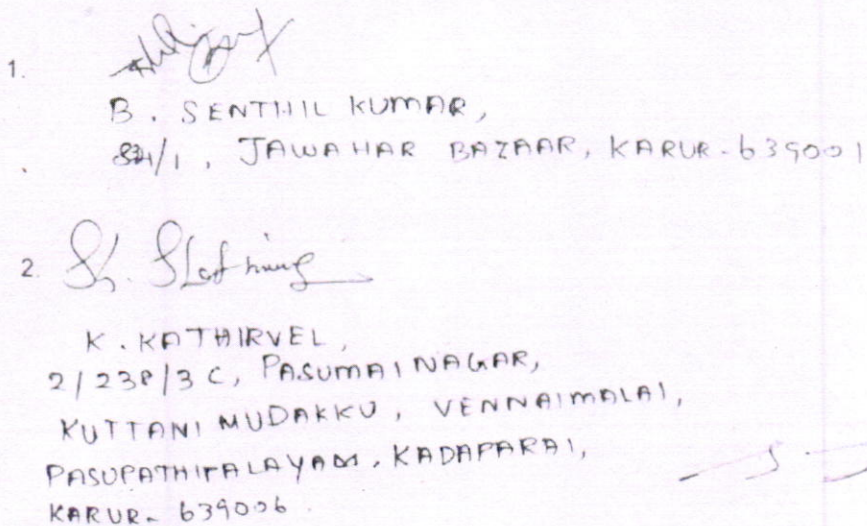 1.
B. SENTHIL KUMAR,
JAWAHAR BAZAAR, KARUR-639001
2.
K. KATHIRVEL,
2/238/3C, PASUMAI NAGAR,
KUTTANI MUDAKKU, VENNAIMALAI,
PASUPATHIPALAYAM, KADAPARAI,
KARUR- 639006.